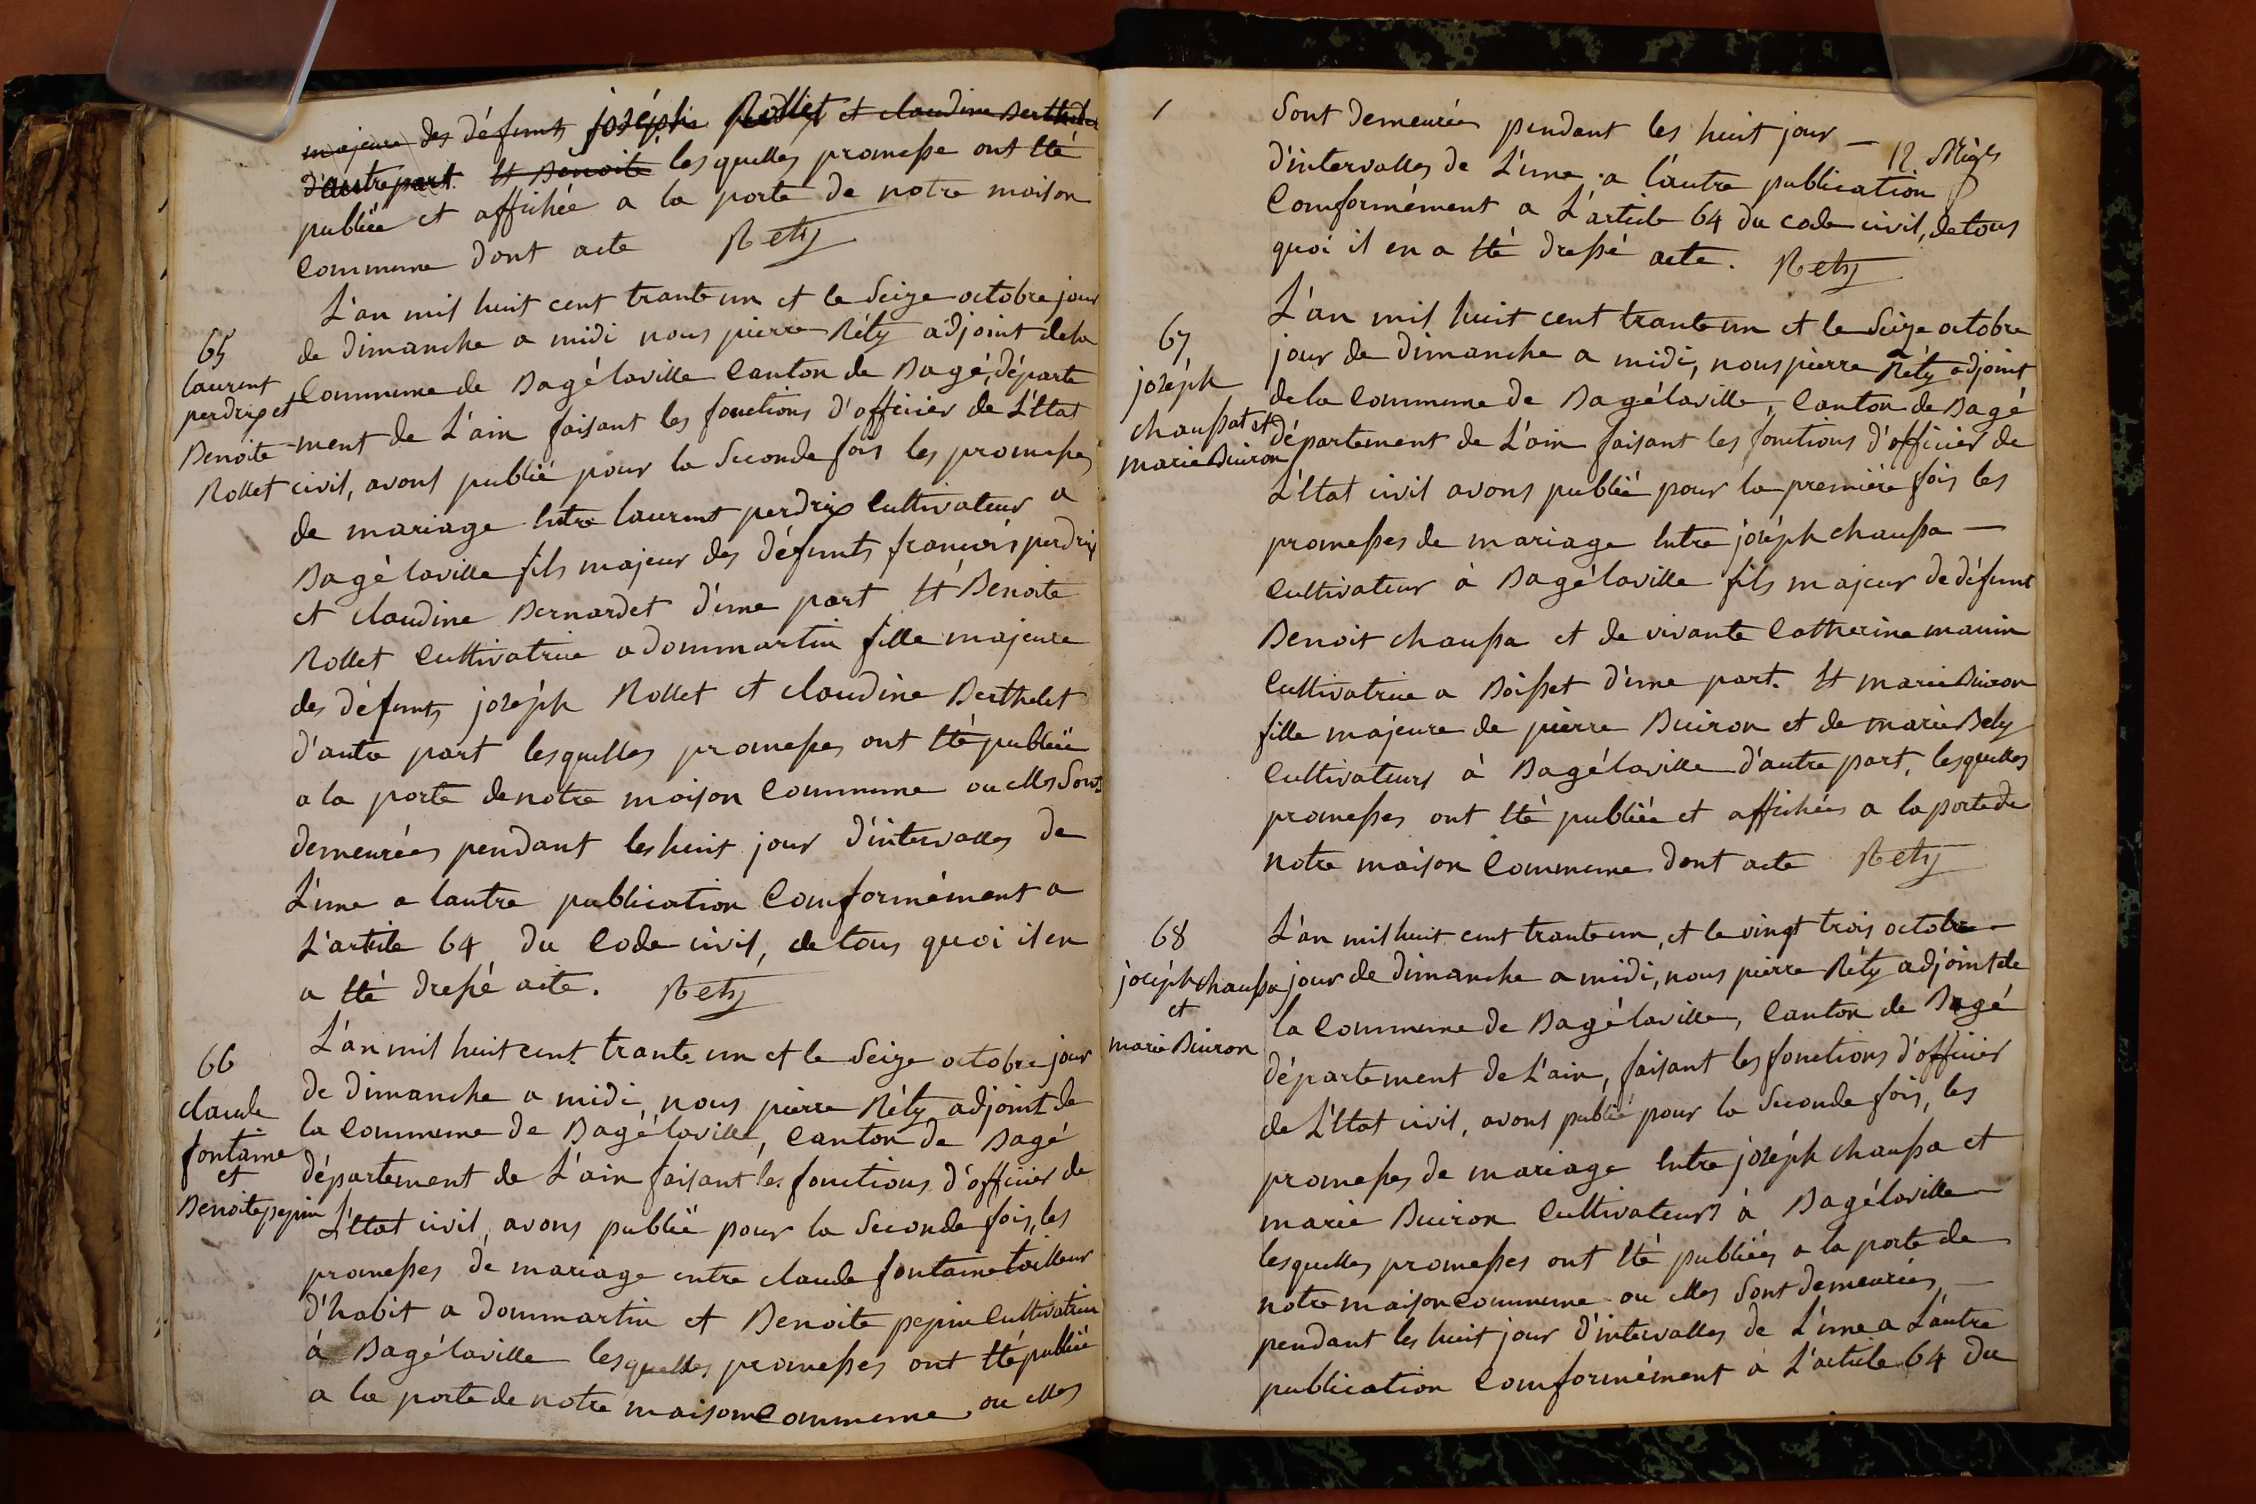 majeure des défunts joséph Rollet et claudine Berthelet
d'autre part. Et Benoite les quelles promesse ont Eté
publiée et affichée a la porte de notre maison
Commune dont acte Rety
65
laurent
perdrix et
Benoite
Rollet
L'an mil huit cent trante un et le Seize octobre jour
de dimanche a midi nous pierre Réty adjoint de la
Commune de Bagélaville Canton de Bagé, départe
-ment de L'ain faisant les fonctions d'officier de L'Etat
civil, avons publié pour la Seconde fois les promesses
de mariage Entre laurent perdrix Cultivateur a
Bagélaville fils majeur des défunts francois perdrix
et claudine Bernardet d'une part Et Benoite
Rollet Cultivatrice a dommartin fille majeure
des défunts joséph Rollet et claudine Berthelet
d'autre part lesquelles promesses ont Eté publiée
a la porte de notre maison Commune ou elles Sont
demeurées pendant les huit jour d'intervalles de
L'une a lautre publication Comformément a
L'article 64 du Code civil, de tous quoi il en
a Eté dressé acte. Rety
66
claude
fontaine
et
Benoite pepin
L'an mil huit cent trante un et le Seize octobre jour
de dimanche a midi nous pierre Réty adjoint de
la Commune de Bagélaville, Canton de Bagé
département de L'ain faisant les fonctions d'officier de
L'Etat civil, avons publié pour la Seconde fois, les
promesses de mariage entre claude fontaine tailleur
d'habit a dommartin et Benoite pepin Cultivatrice
á Bagélaville lesquelles promesses ont Eté publiée
a la porte de notre maison Commune, ou elles
1
Sont demeurées pendant les huit jour —
d'intervalles de L'une a l'autre publication
Comformément a L'article 64 du code civil, de tous
quoi il en a Eté dressé acte. Rety
67
joséph
chaussat et
marie Buiron
L'an mil huit cent trante un et le Seize octobre
jour de dimanche a midi, nous pierre Réty adjoint
de la Commune de Bagélaville, Canton de Bagé
département de L'ain faisant les fonctions d'officier de
L'Etat civil avons publié pour la premiére fois les
promesses de mariage Entre joséph chaussa —
Cultivateur à Bagélaville fils majeur de défunt
Benoit chaussa et de vivante Catherine manin
Cultivatrice a Boisset d'une part. Et marie Buiron
fille majeure de pierre Buiron et de marie Bely
Cultivateurs à Bagélaville d'autre part, lesquelles
promesses ont Eté publiée et affichées a la porte de
notre maison Commune dont acte Rety
68
joséph chaussa
et
marie Buiron
L'an mil huit cent trante un, et le vingt trois octobre —
jour de dimanche a midi, nous pierre Réty adjoint de
la Commune de Bagélaville, Canton de Bagé
département de L'ain, faisant les fonctions d'officier
de L'Etat civil, avons publié pour la Seconde fois, les
promesses de mariage Entre joséph chaussa et
marie Buiron Cultivateurs à Bagélaville
lesquelles promesses ont Eté publiées a la porte de
notre maison commune ou elles Sont demeurées —
pendant les huit jour d'intervalles de L'une a L'autre
publication Comformément a L'article 64 du